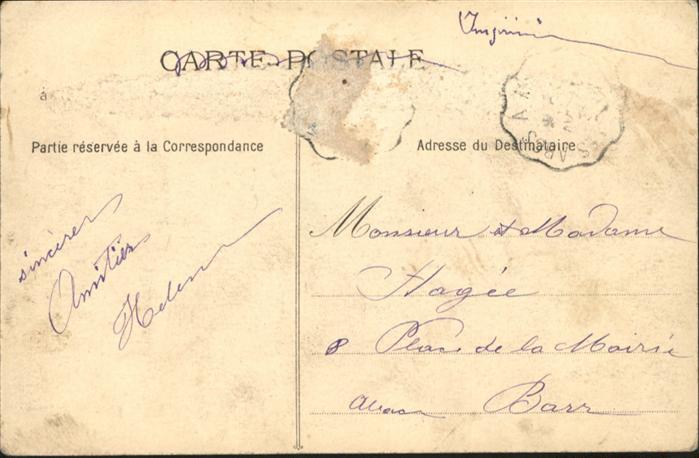 CARTE POSTALE
à
Partie réservée à la Correspondance
Adresse du Destinataire
sincères
Amitiés
Helene
Monsieur et Madame
Hagée
8 Place de la Mairie
Alsace Barr